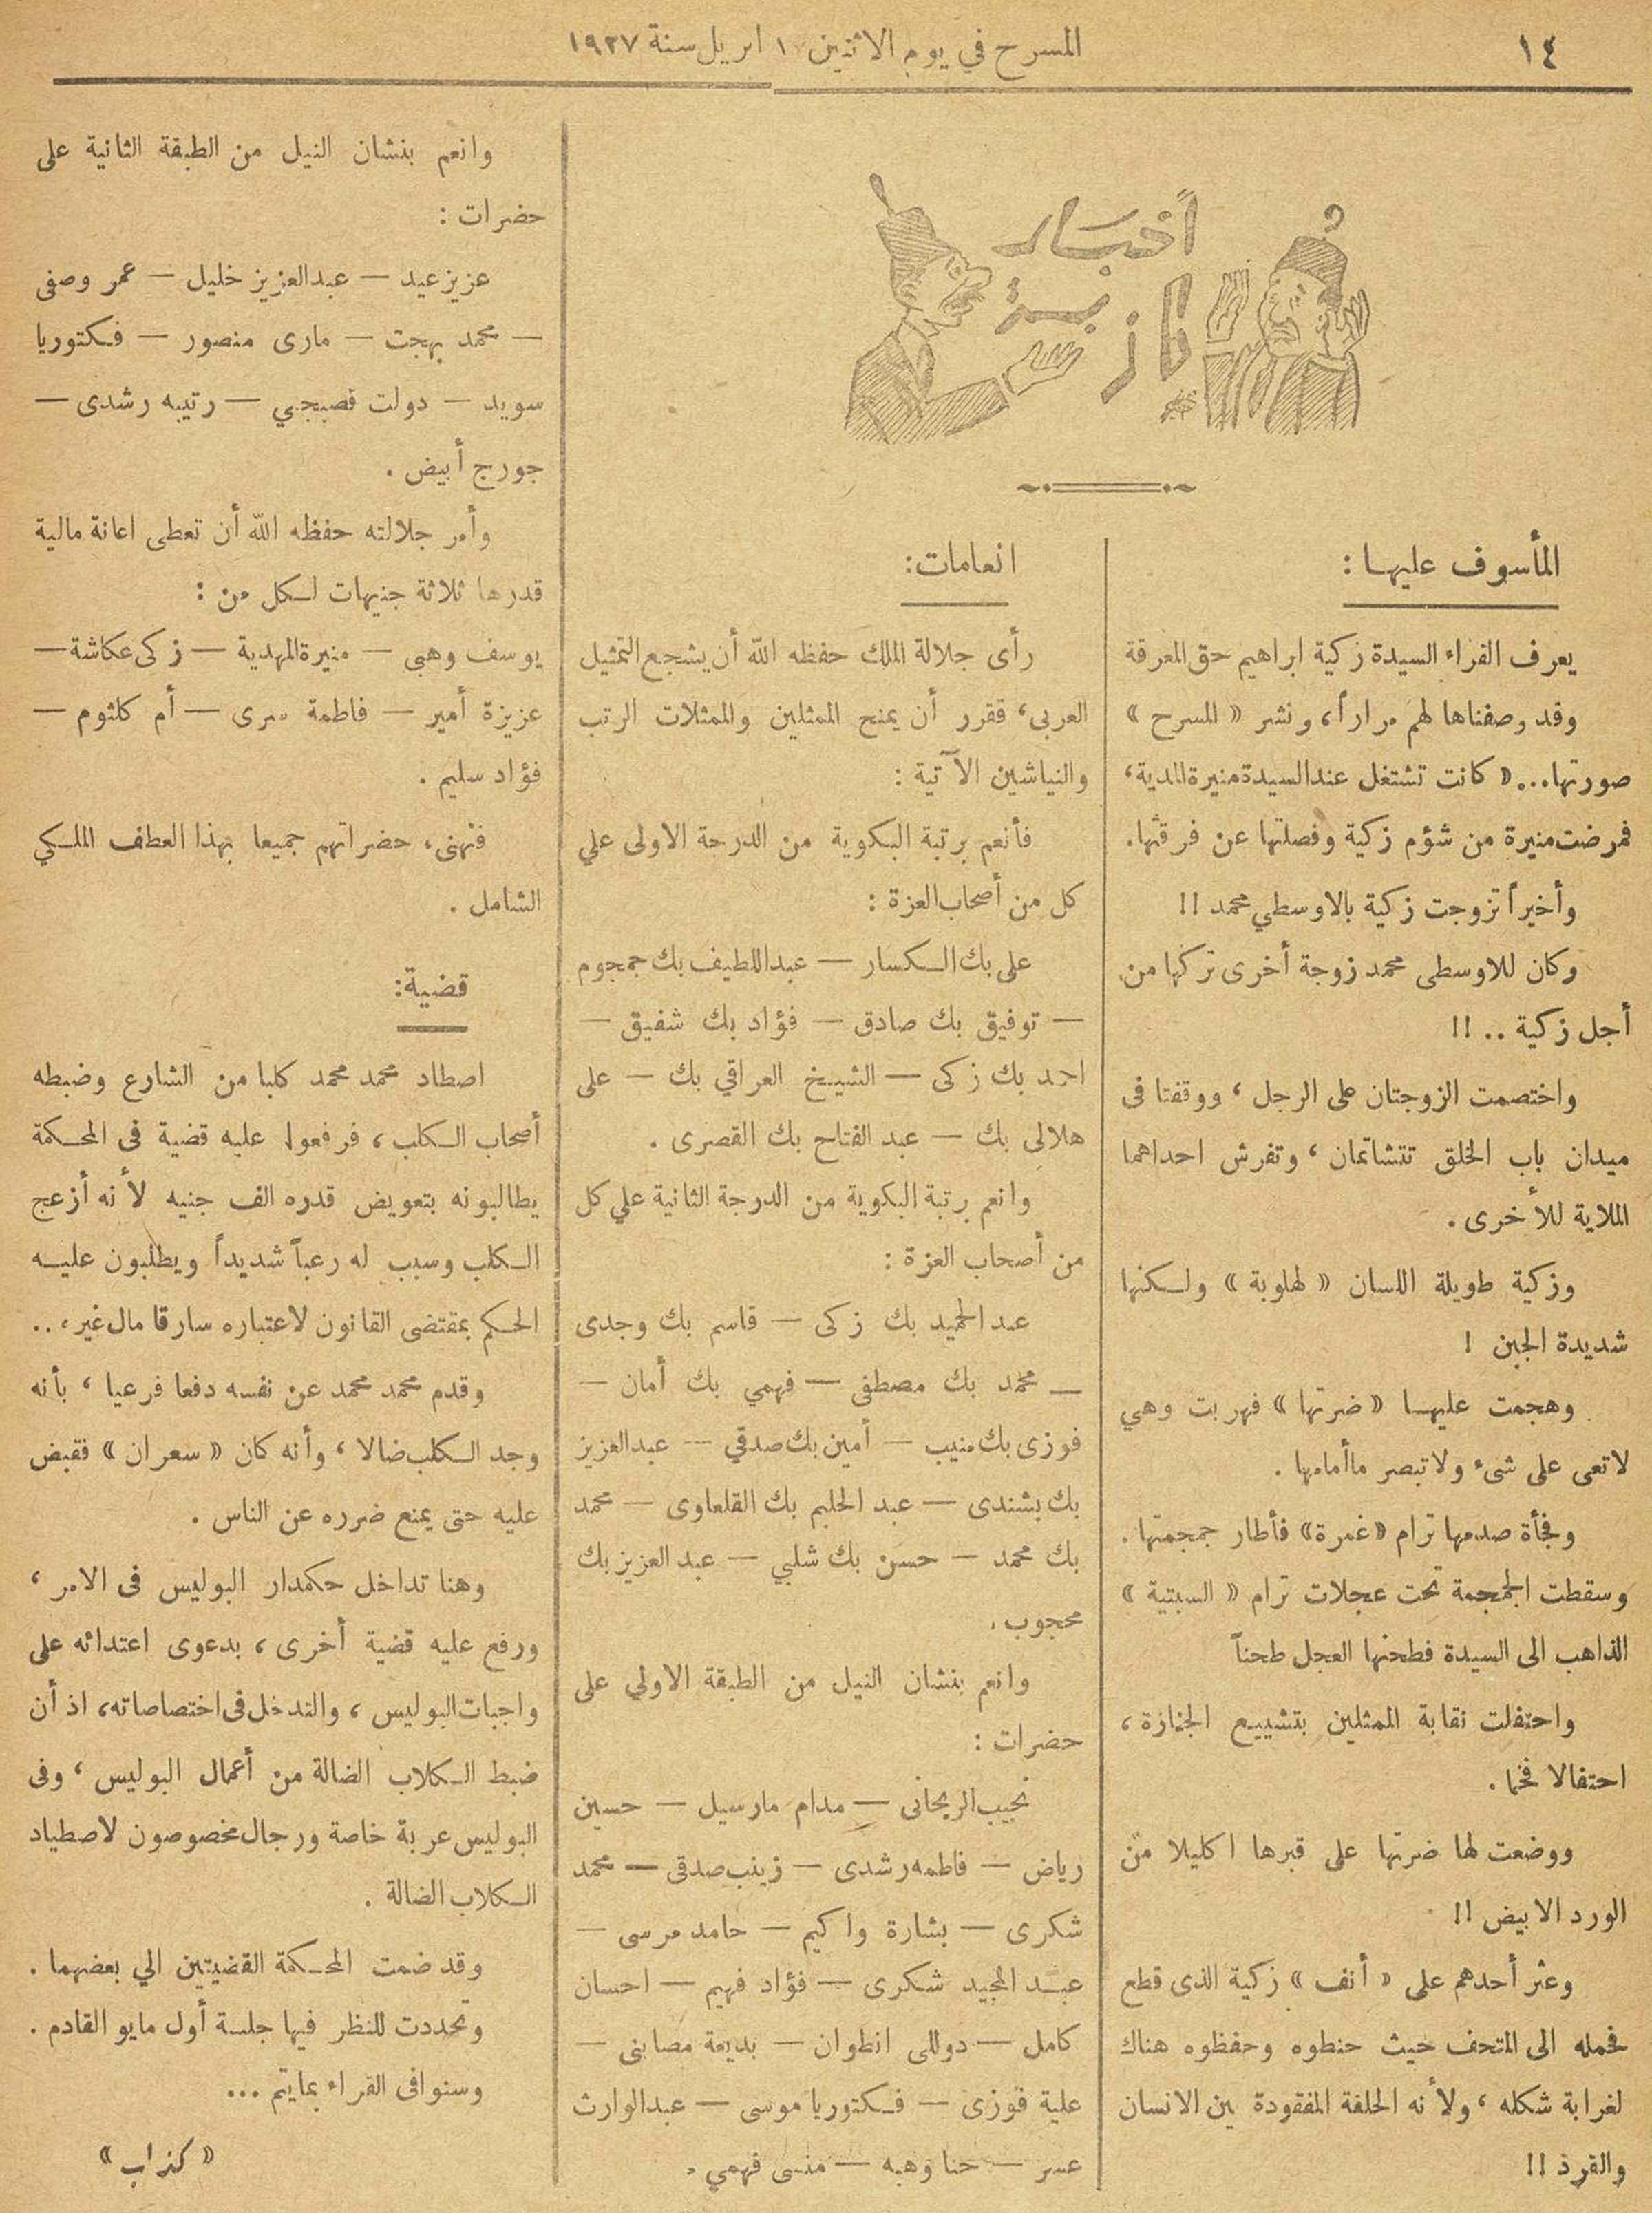 ١٤
المسرح في يوم الاثنين ١ ابريل سنة ١٩٢٧
أخبار
كاذبة
المأسوف عليها :
يعرف القراء السيدة زكية ابراهيم حق المعرفة
وقد وصفناها لهم مراراً ، ونشر « المسرح »
صورتها... « كانت تشتغل عند السيدة منيرة المدية ،
فمرضت منيرة من شؤم زكية وفصلتها عن فرقتها .
وأخيراً تزوجت زكية بالاوسطي محمد !!
وكان للاوسطى محمد زوجة أخرى تركها من
أجل زكية .. !!
واختصمت الزوجتان على الرجل ، ووقفتا فى
ميدان باب الخلق تتشاتمان ، وتفرش احداهما
الملاية للأخرى .
وزكية طويلة اللسان « لهلوبة » ولكنها
شديدة الجبن !
وهجمت عليها « ضرتها » فهربت وهي
لاتعى على شىء ولا تبصر ماأمامها .
وفجأة صدمها ترام «غمرة» فأطار جمجمتها .
وسقطت الجمجمة تحت عجلات ترام « السبتية »
الذاهب الى السيدة فطحنها العجل طحناً
واحتفلت نقابة الممثلين بتشييع الجنازة ،
احتفالا فخما .
ووضعت لها ضرتها على قبرها اكليلا من
الورد الابيض !!
وعثر أحدهم على « أنف » زكية الذى قطع
فحمله الى المتحف حيث حنطوه وحفظوه هناك
لغرابة شكله ، ولأنه الحلقة المفقودة بين الانسان
والقرد !!
انعامات :
رأى جلالة الملك حفظه الله أن يشجع التمثيل
العربى ، فقرر أن يمنح الممثلين والممثلات الرتب
والنياشين الآتية :
فأنعم برتبة البكوية من الدرجة الاولى علي
كل من أصحاب العزة :
على بك الكسار — عبد اللطيف بك جمجوم
— توفيق بك صادق — فؤاد بك شفيق —
احمد بك زكى — الشيخ العراقي بك — على
هلالى بك — عبد الفتاح بك القصرى .
وانعم برتبة البكوية من الدرجة الثانية علي كل
من أصحاب العزة :
عبد الحميد بك زكى — قاسم بك وجدى
— محمد بك مصطفى — فهمي بك أمان —
فوزى بك منيب — أمين بك صدقي — عبد العزيز
بك بشندى — عبد الحليم بك القلعاوى — محمد
بك محمد — حسن بك شلبي — عبد العزيز بك
محجوب .
وانعم بنشان النيل من الطبقة الاولي على
حضرات :
نجيب الريحانى — مدام مارسيل — حسين
رياض — فاطمه رشدى — زينب صدقى — محمد
شكرى — بشارة واكيم — حامد مرسى —
عبد المجيد شكرى — فؤاد فهيم — احسان
كامل — دوللى انطوان — بديعة مصابنى —
علية فوزى — فكتوريا موسى — عبد الوارث
عسر — حنا وهبه — منسى فهمي .
وانعم بنشان النيل من الطبقة الثانية على
حضرات :
عزيز عيد — عبد العزيز خليل — عمر وصفى
— محمد بهجت — مارى منصور — فكتوريا
سويد — دولت قصبجي — رتيبه رشدى —
جورج أبيض .
وأمر جلالته حفظه الله أن تعطى اعانة مالية
قدرها ثلاثة جنيهات لكل من :
يوسف وهبى — منيرة المهدية — زكى عكاشة —
عزيزة أمير — فاطمة سرى — أم كلثوم —
فؤاد سليم .
فنهنىء حضراتهم جميعا بهذا العطف الملكي
الشامل .
قضية :
اصطاد محمد محمد كلبا من الشارع وضبطه
أصحاب الكلب ، فرفعوا عليه قضية فى المحكمة
يطالبونه بتعويض قدره الف جنيه لأنه أزعج
الكلب وسبب له رعباً شديداً ويطلبون عليه
الحكم بمقتضى القانون لاعتباره سارقا مال غيره ..
وقدم محمد محمد عن نفسه دفعا فرعيا ، بأنه
وجد الكلب ضالا ، وأنه كان « سعران » فقبض
عليه حتى يمنع ضرره عن الناس .
وهنا تداخل حكمدار البوليس فى الامر ،
ورفع عليه قضية أخرى ، بدعوى اعتدائه على
واجبات البوليس ، والتدخل فى اختصاصاته ، اذ أن
ضبط الكلاب الضالة من أعمال البوليس ، وفى
البوليس عربة خاصة ورجال مخصوصون لاصطياد
الكلاب الضالة .
وقد ضمت المحكمة القضيتين الي بعضهما .
وتحددت للنظر فيها جلسة أول مايو القادم .
وسنوافى القراء بمايتم ...
« كذاب »